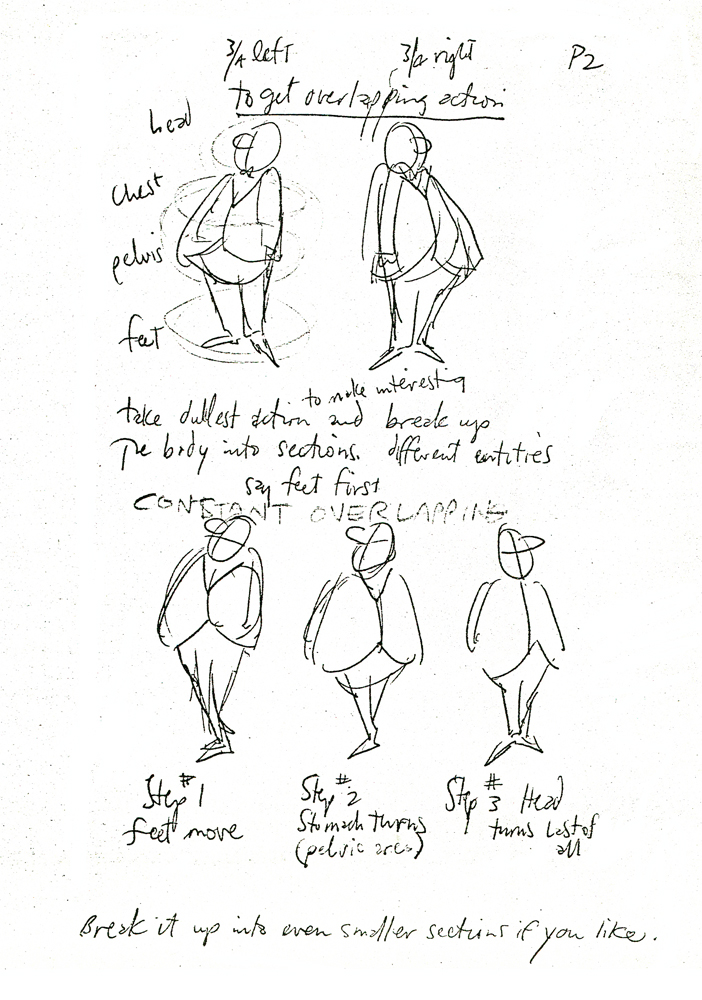 3/4 left
3/4 right
P2
to get overlapping action
head
chest
pelvis
feet
to make interesting
take dullest action and break up
The body into sections. different entities
say feet first
CONSTANT OVERLAPPING
Step #1
feet move
Step #2
Stomach turns
(pelvic area)
Step #3 Head
turns last of
all
Break it up into even smaller sections if you like.